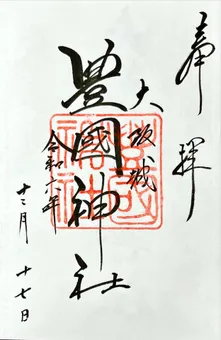 奉拝
大坂城
豊國神社
令和六年
十二月十七日